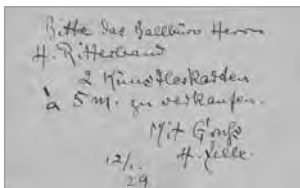 Bitte das Ballbüro Herrn
H. Ritterband
2 Künstlerkarten
à 5 M. zu verkaufen.
Mit Gruß
H. Zille.
12/1.
29